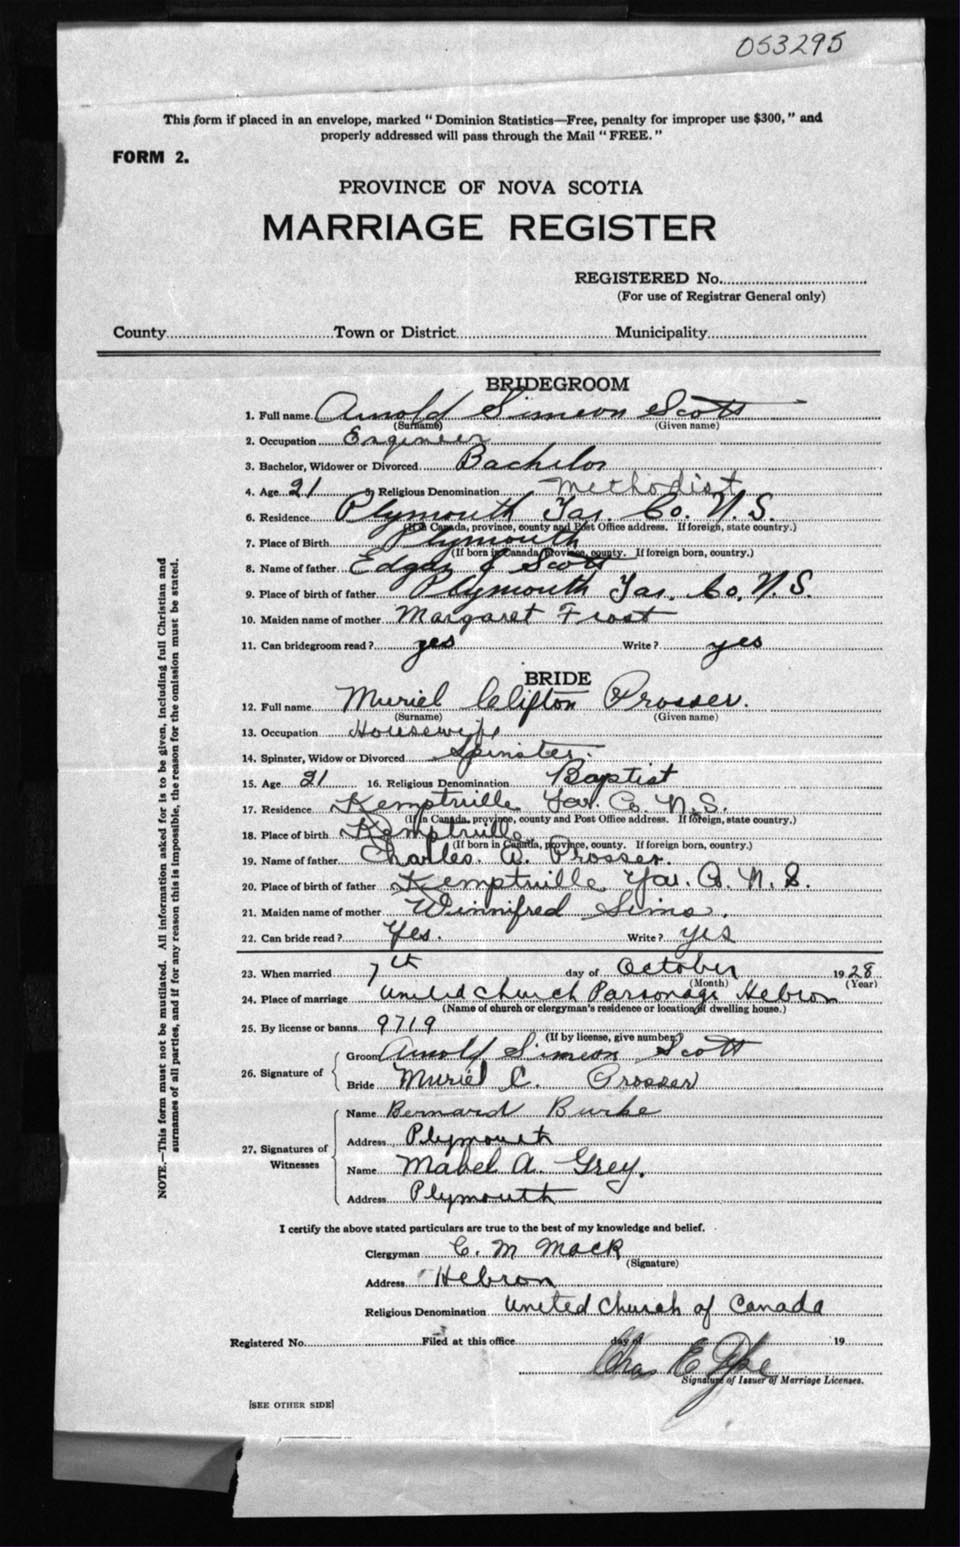 053295
This form if placed in an envelope, marked “Dominion Statistics—Free, penalty for improper use $300,” and
properly addressed will pass through the Mail “FREE.”
FORM 2.
PROVINCE OF NOVA SCOTIA
MARRIAGE REGISTER
REGISTERED No.
(For use of Registrar General only)
County Town or District Municipality
BRIDEGROOM
1. Full name Arnold Simeon Scott
(Surname) (Given name)
2. Occupation Engineer
3. Bachelor, Widower or Divorced Bachelor
4. Age 21 5. Religious Denomination Methodist
6. Residence Plymouth Yar. Co. N.S.
(If in Canada, province, county and Post Office address. If foreign, state country.)
7. Place of Birth Plymouth
(If born in Canada, province, county. If foreign born, country.)
8. Name of father Edgar J Scott
9. Place of birth of father Plymouth Yar. Co. N.S.
10. Maiden name of mother Margaret Frost
11. Can bridegroom read? yes Write? yes
BRIDE
12. Full name Muriel Clifton Prosser.
(Surname) (Given name)
13. Occupation Housewife
14. Spinster, Widow or Divorced Spinster.
15. Age 21 16. Religious Denomination Baptist
17. Residence Kemptville Yar. Co N.S.
(If in Canada, province, county and Post Office address. If foreign, state country.)
18. Place of birth Kemptville
(If born in Canada, province, county. If foreign born, country.)
19. Name of father Charles. W. Prosser.
20. Place of birth of father Kemptville Yar. Co. N. S.
21. Maiden name of mother Winnifred Sims.
22. Can bride read? Yes. Write? yes
23. When married 7th day of October 1928
(Month) (Year)
24. Place of marriage United Church Parsonage Hebron
(Name of church or clergyman's residence or location of dwelling house.)
25. By license or banns 9719
(If by license, give number.)
26. Signature of
Groom Arnold Simeon Scott
Bride Muriel C. Prosser
27. Signatures of Witnesses
Name Bernard Burke
Address Plymouth
Name Mabel A. Grey.
Address Plymouth
I certify the above stated particulars are true to the best of my knowledge and belief.
Clergyman C. M Mack
(Signature)
Address Hebron
Religious Denomination United Church of Canada
Registered No. Filed at this office day of 19
Chas E
Signature of Issuer of Marriage Licenses.
[SEE OTHER SIDE]
NOTE.—This form must not be mutilated. All information asked for is to be given, including full Christian and
surnames of all parties, and if for any reason this is impossible, the reason for the omission must be stated.